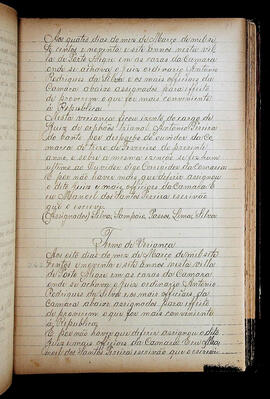 Aos quatro dias do mez de Março de mil se
te centos e noventa e sete annos nesta vil
la de Porto Alegre em as cazas da Camara
onde se achava o Juiz ordinario Antonio
Rodrigues da Silva e os mais officiaes da
Camara abaixo assignados para effeito
de proverem o que for mais conveniente
á Republica
Nesta vreiança ficou izento do cargo de
Juiz de orphãos Antonio Ferreira
por despacho do ouvidor da Co
marca de treze de Fevereiro do presente
anno, e sobre a mesma izenção se fez hum
ao Ouvidor digo Corregedor da Comarca
E por não haver mais que deferir assignou
o dito juiz e mais officiaes da Camara E
eu Manoel dos Santos Ferreira escrivão
que o escrevy
(Assignados) Silva, Sampaio, Passos, Lima, Silva
Termo de Vriança
Aos sete dias do mez de Março de mil sete
centos e noventa e sete annos nesta villa
de Porto Alegre em as cazas da Camara
onde se achava o Juiz ordinario Antonio
Rodrigues da Silva, e os mais officiaes da
Camara abaixo assignados para effeito
de proverem o que for mais conveniente
á Republica
E por não haver que deferir assignou o dito
Juiz e mais officiaes da Camara E eu Ma
noel dos Santos Ferreira escrivão que o escrevy